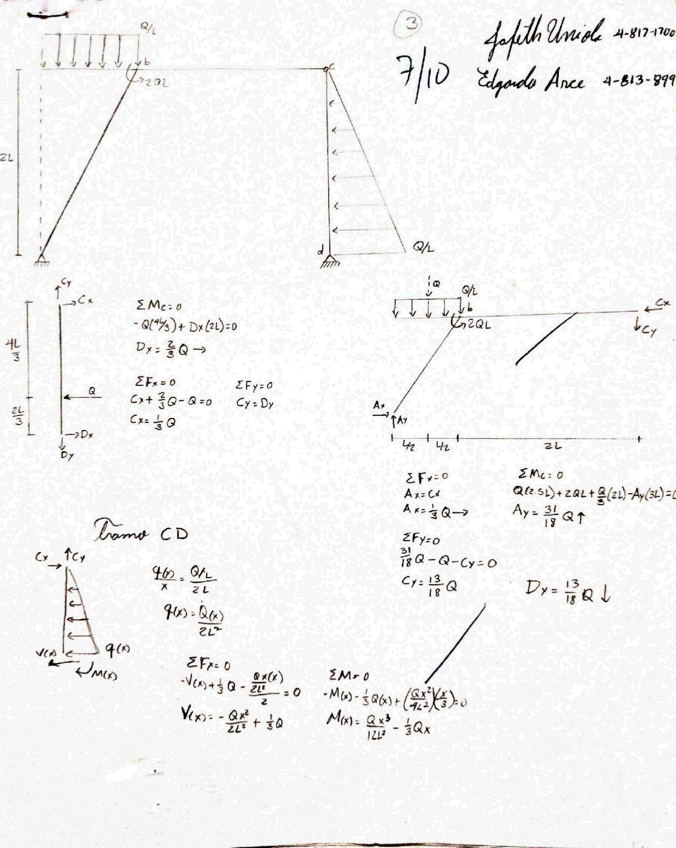 3
Jafeth Uniola 4-817-1700
7/10
Edgardo Arce 4-813-899
Q/L
b
2QL
c
2L
d
Q/L
Cy
Cx
4L/3
Q
2L/3
Dx
Dy
ΣMc=0
-Q(4L/3)+Dx(2L)=0
Dx=2/3 Q →
ΣFx=0
Cx+2/3Q-Q=0
Cx=1/3 Q
ΣFy=0
Cy=Dy
Q
Q/L
b
2QL
Cx
Cy
Ax
Ay
L/2
L/2
2L
ΣFx=0
Ax=Cx
Ax=1/3 Q →
ΣFy=0
31/18Q-Q-Cy=0
Cy=13/18 Q
ΣMc=0
Q(2.5L)+2QL+Q/3(2L)-Ay(3L)=0
Ay=31/18 Q↑
Dy=13/18 Q ↓
Tramo CD
Cx
Cy
V(x)
q(x)
M(x)
q(x)/x = Q/L/2L
q(x)=Q(x)/2L²
ΣFx=0
-V(x)+1/3 Q - Qx(x)/2L²/2 =0
V(x)=-Qx²/2L² + 1/3Q
ΣM=0
-M(x)-1/3Q(x)+(Qx²/4L²)(x/3)=0
M(x)=Qx³/12L² - 1/3Qx